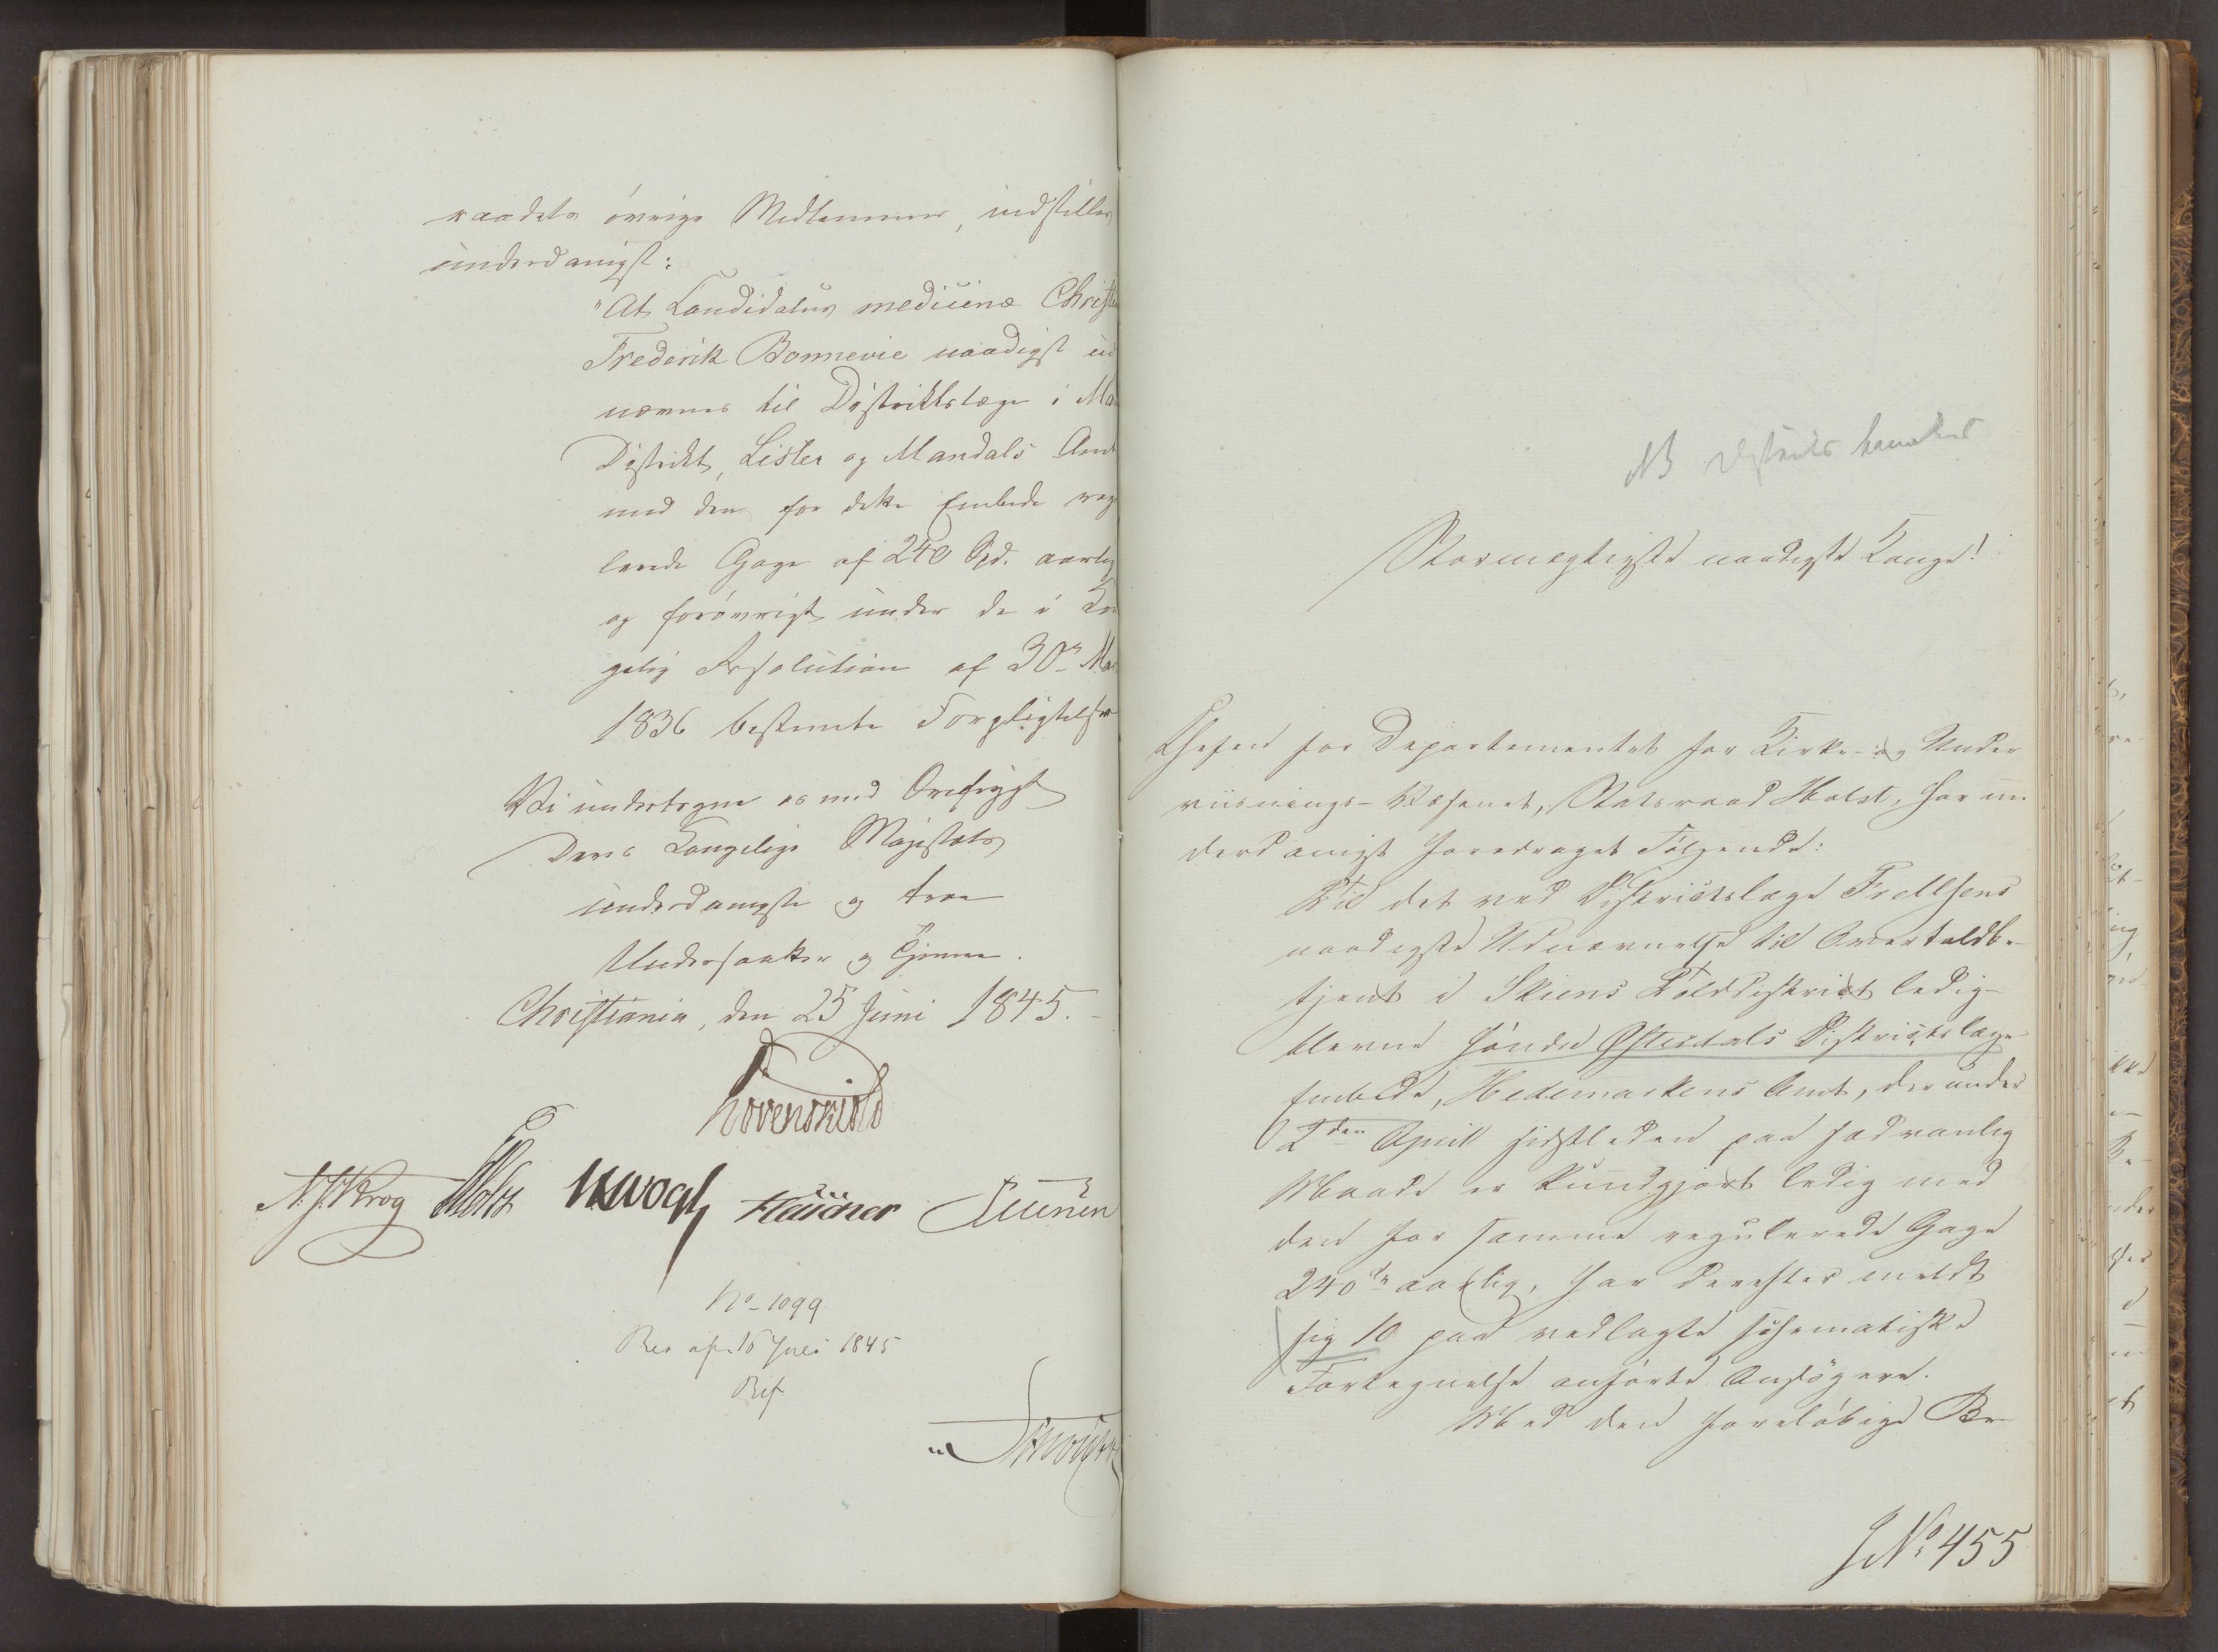 raadets övrige Medlemmer, indstilles
underdanigst:
"At Candidatus medicinæ Christ
Frederik Bonnevie naadigst ud
nævnes til Distriktslæge i Man
Distrikt, Lister og Mandals Amt
med den for dette Embede regu
lerede Gage af 240 Spd. aarlig
og forövrigt under de i Kon
gelig Resolution af 30n Mar
1836 bestemte Forpligtelser
Vi undertegne os med Ærefrygt
Deres Kongelige Majestæts
underdanigste og troe
Undersaatter og Tjenere.
Christiania, den 25 Juni 1845.
Lövenskiold
N. J. Krog Holst JHVogt
No 1099
Res af 16 Juli 1845
NB Distrikts
Stormægtigste naadigste Konge!
Chefen for Departementet for Kirke- og Under
viisnings-Væsenet, Statsraad Holst, har un
derdanigst foredraget Følgende:
Til det ved Districtslæge Frellsens
naadigste Udnævnelse til Overtoldbe-
tjent i Skiens Tolddistrict ledig-
blevne söndre Østerdals Districtslæge-
Embede, Hedemarkens Amt, der under
2den April sidstleden paa sædvanlig
Maade er kundgjort ledig med
den for samme regulerede Gage
240 Spd aarlig, har derefter meldt
sig 10 paa vedlagte schematiske
Fortegnelse anförte Ansögere.
Med den foreløbige Be-
J No 455